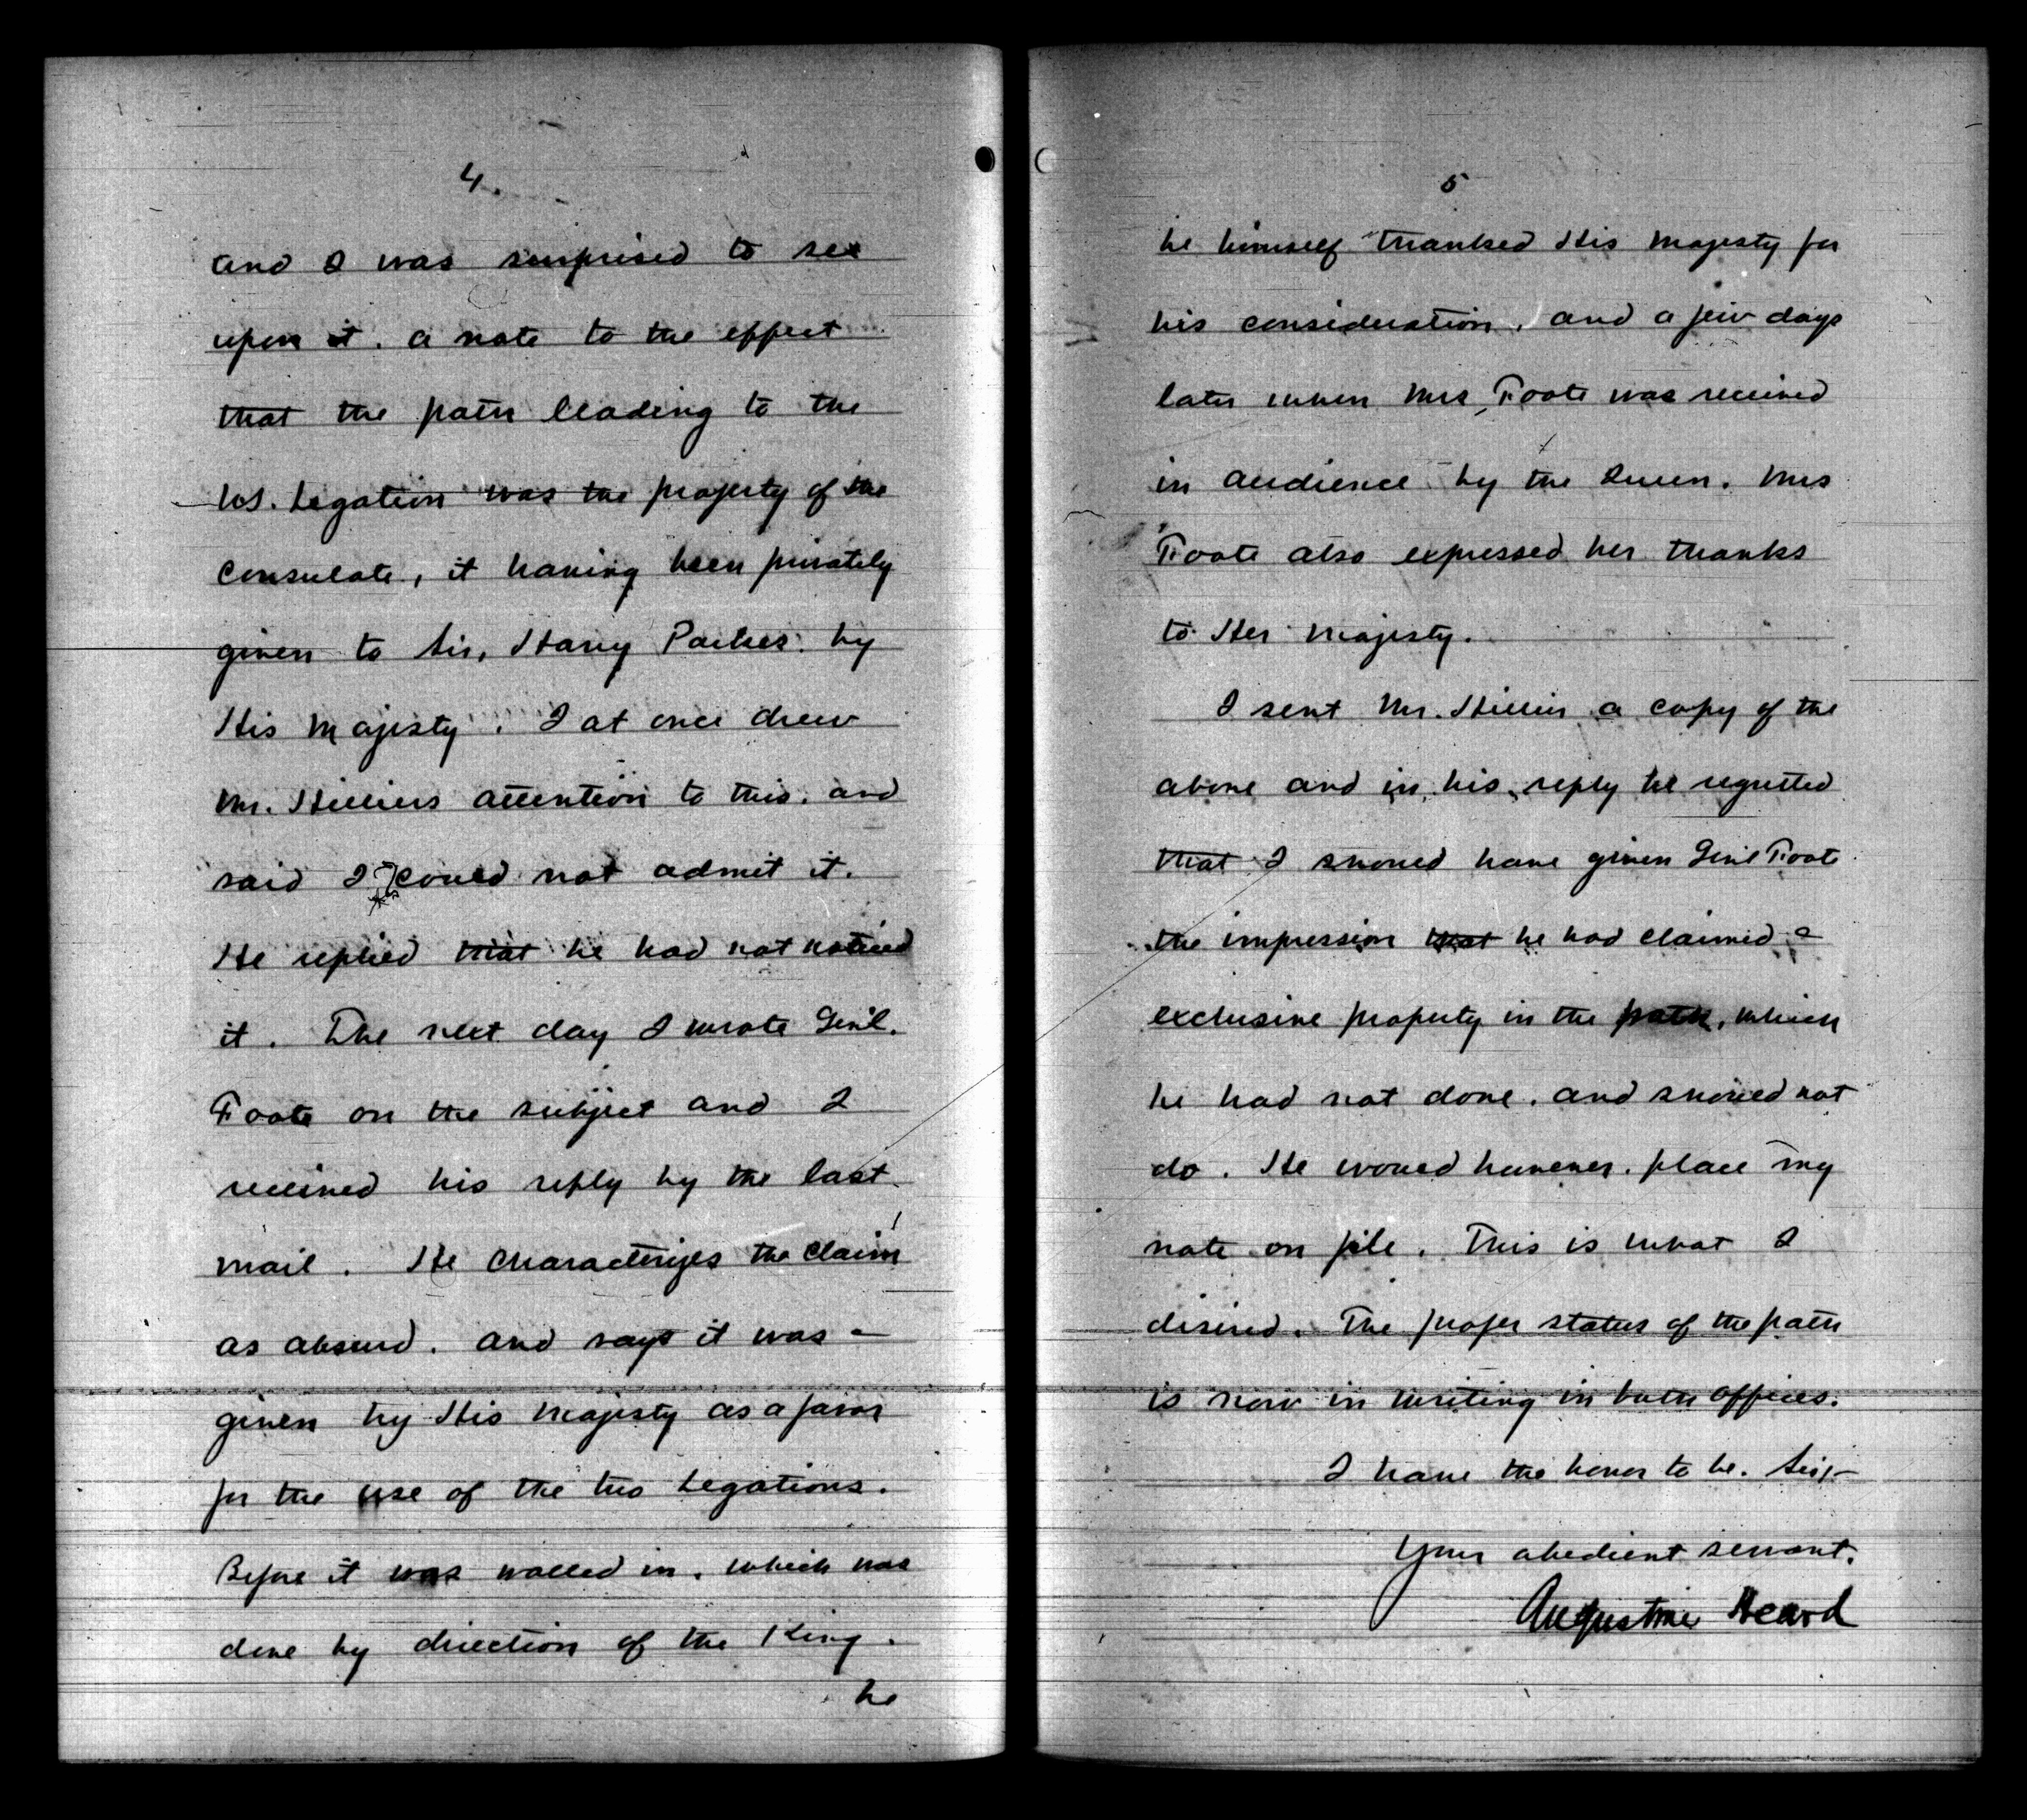 4.
and I was surprised to see
upon it. a note to the effect
that the path leading to the
US. Legation was the property of the
Consulate, it having been privately
given to Sir, Harry Parkes. by
His Majesty. I at once drew
Mr. Hilliers attention to this. and
said I could not admit it.
He replied that he had not noticed
it. The next day I wrote Gen'l.
Foote on the subject and I
received his reply by the last
mail. He characterizes the claim
as absurd. and says it was
given by His Majesty as a favor
for the use of the two Legations.
Before it was walled in. which was
done by direction of the King.
he
5
he himself thanked His Majesty for
his consideration, and a few days
later when Mrs, Foote was received
in audience by the Queen. Mrs
Foote also expressed her thanks
to Her Majesty.
I sent Mr. Hillier a copy of the
above and in his reply he regretted
that I should have given Gen'l Foote
the impression that he had claimed
exclusive property in the path, which
he had not done. and should not
do. He would however. place my
note on file. This is what I
desired. The proper status of the path
is now in writing in both offices.
I have the honor to be. Sir,
Your obedient servant.
Augustine Heard